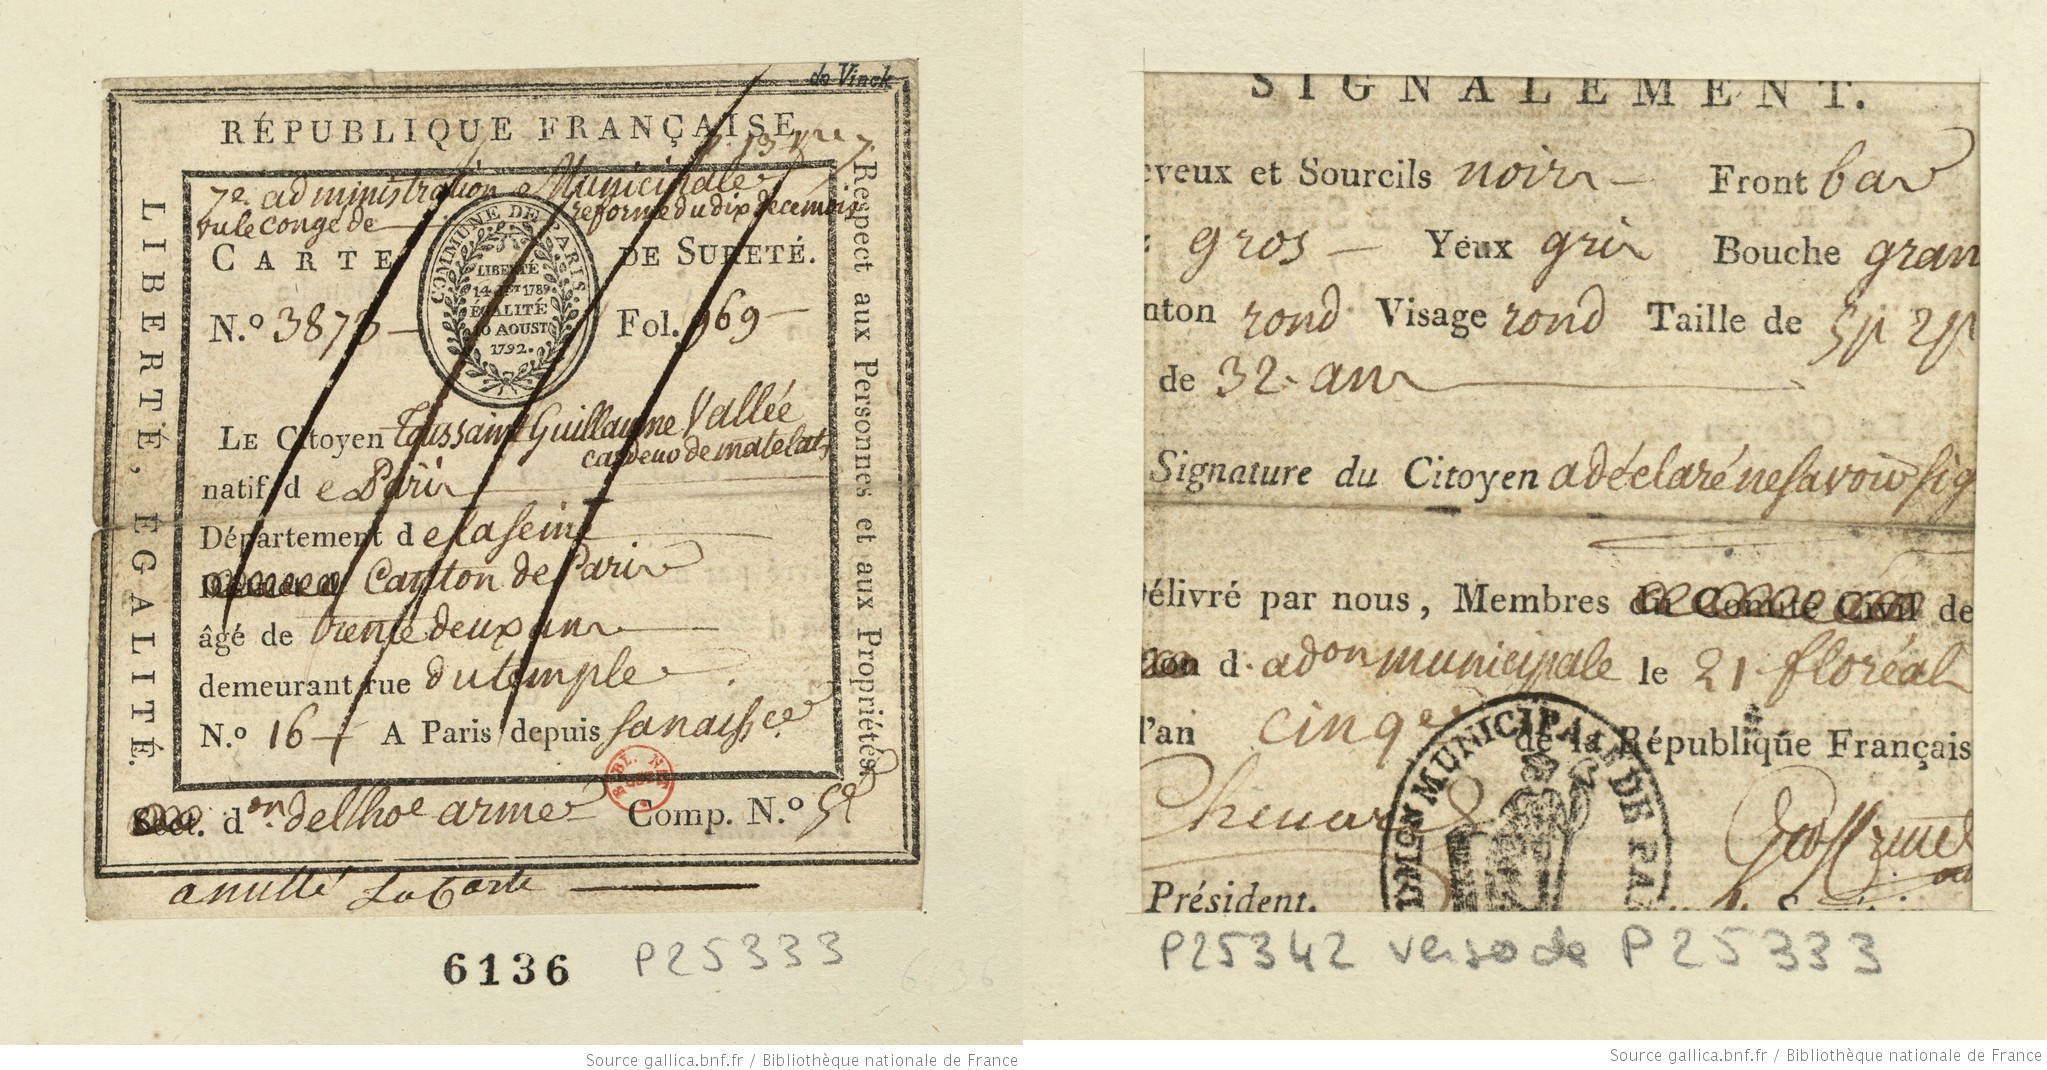 de Vinck
RÉPUBLIQUE FRANÇAISE
7e. administration Municipale
vu le congé de reforme du dix de ce mois
CARTE DE SURETÉ.
COMMUNE DE PARIS.
LIBERTÉ
14 JET 1789
ÉGALITÉ
10 AOUST
1792.
N.º 3873 Fol. 969
LE Citoyen Toussaint Guillaume Vallée
cardeur de matelats
natif de Paris
Département de la Seine
Canton de Paris
âgé de trente deux ans
demeurant rue du temple
N.º 16 A Paris depuis sa naissce
Sect. don. de lhoe armé Comp. N.º 5e
anullé La Carte
LIBERTÉ, ÉGALITÉ.
Respect aux Personnes et aux Propriétés.
6136 P25333
SIGNALEMENT.
eveux et Sourcils noirs Front bas
z gros Yeux gris Bouche gran
nton rond Visage rond Taille de 5p 2p
de 32 ans
Signature du Citoyen a déclaré ne savoir sig
Délivré par nous, Membres du Comité Civil de
tion d. adon municipale le 21 floréal
l'an cinqe de la République Français
Chenard
DMON MUNICIPALE DE PA
Président.
P25342 verso de P25333
Source gallica.bnf.fr / Bibliothèque nationale de France
Source gallica.bnf.fr / Bibliothèque nationale de France